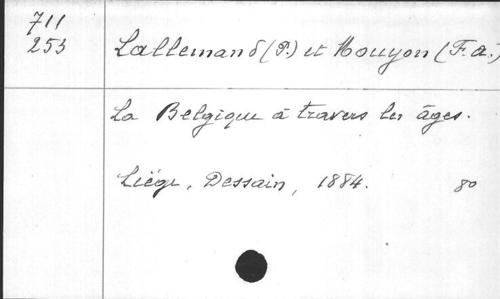 711
253
Lallemand (P.) et Mouyon (F. A.)
La Belgique à travers les âges.
Liége, Dessain, 1884. 8°